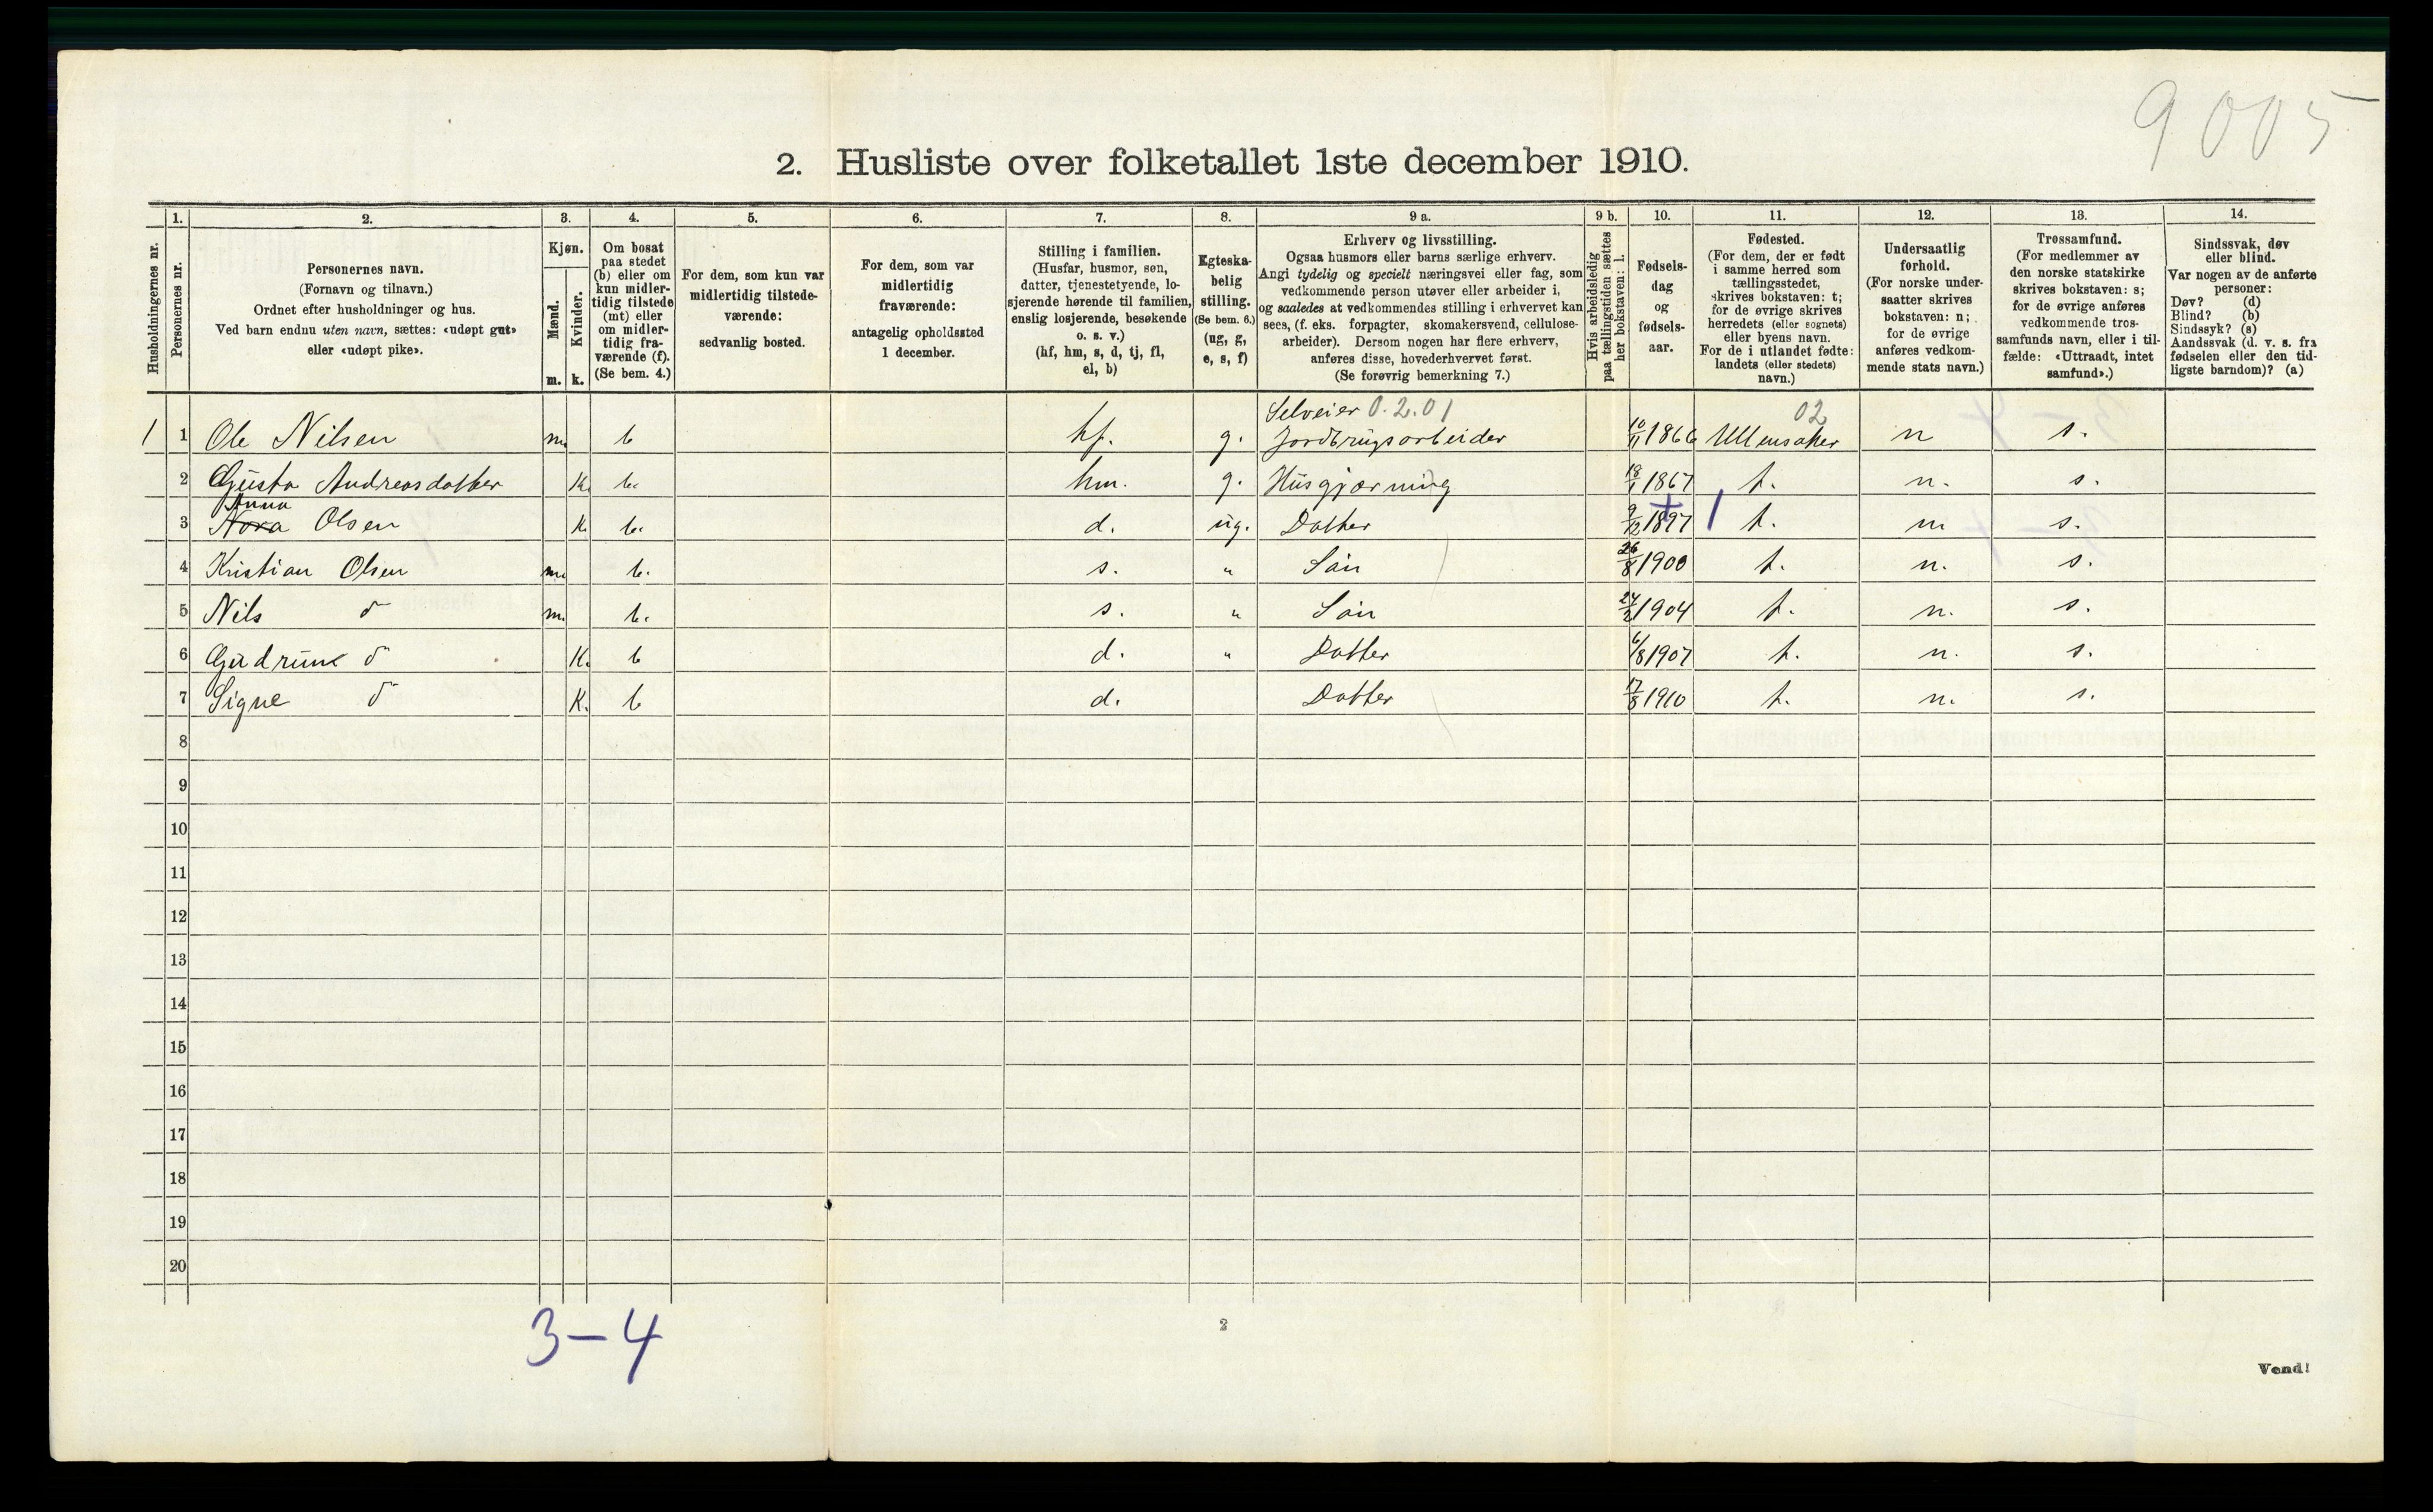 9005
2. Husliste over folketallet 1ste december 1910.
Husholdningernes nr.
1.
Personernes nr.
2.
Personernes navn.
(Fornavn og tilnavn.)
Ordnet efter husholdninger og hus.
Ved barn endnu uten navn, sættes: «udøpt gut»
eller «udøpt pike».
3.
Kjøn.
Mænd.
Kvinder.
m. k.
4.
Om bosat
paa stedet
(b) eller om
kun midler-
tidig tilstede
(mt) eller
om midler-
tidig fra-
værende (f).
(Se bem. 4.)
5.
For dem, som kun var
midlertidig tilstede-
værende:
sedvanlig bosted.
6.
For dem, som var
midlertidig
fraværende:
antagelig opholdssted
1 december.
7.
Stilling i familien.
(Husfar, husmor, søn,
datter, tjenestetyende, lo-
sjerende hørende til familien,
enslig losjerende, besøkende
o. s. v.)
(hf, hm, s, d, tj, fl,
el, b)
8.
Egteska-
belig
stilling.
(Se bem. 6.)
(ug, g,
e, s, f)
9 a.
Erhverv og livsstilling.
Ogsaa husmors eller barns særlige erhverv.
Angi tydelig og specielt næringsvei eller fag, som
vedkommende person utøver eller arbeider i,
og saaledes at vedkommendes stilling i erhvervet kan
sees, (f. eks. forpagter, skomakersvend, cellulose-
arbeider). Dersom nogen har flere erhverv,
anføres disse, hovederhvervet først.
(Se forøvrig bemerkning 7.)
9 b.
Hvis arbeidsledig
paa tællingstiden sættes
her bokstaven: l.
10.
Fødsels-
dag
og
fødsels-
aar.
11.
Fødested.
(For dem, der er født
i samme herred som
tællingsstedet,
skrives bokstaven: t;
for de øvrige skrives
herredets (eller sognets)
eller byens navn.
For de i utlandet fødte:
landets (eller stedets)
navn.)
12.
Undersaatlig
forhold.
(For norske under-
saatter skrives
bokstaven: n;
for de øvrige
anføres vedkom-
mende stats navn.)
13.
Trossamfund.
(For medlemmer av
den norske statskirke
skrives bokstaven: s;
for de øvrige anføres
vedkommende tros-
samfunds navn, eller i til-
fælde: «Uttraadt, intet
samfund».)
14.
Sindssvak, døv
eller blind.
Var nogen av de anførte
personer:
Døv? (d)
Blind? (b)
Sindssyk? (s)
Aandssvak (d. v. s. fra
fødselen eller den tid-
ligste barndom)? (a)
Selveier 0.2.01 02
1 1 Ole Nilsen m. b hf. g. Jordbrugsarbeider 10/11 1866 Ullensaker n s.
2 Gusta Andreasdatter K. b. hm. g. Husgjærning 18/1 1867 t. n. s.
Anna
3 Nora Olsen K. b. d. ug. Datter 9/12 1897 t. n s.
4 Kristian Olsen m. b. s. " Sön 26/8 1900 t. n. s.
5 Nils d m. b. s. " Sön 24/2 1904 t. n. s.
6 Gudrune d K. b d. " Datter 6/8 1907 t. n. s.
7 Signe d K. b d. Datter 17/8 1910 t. n. s.
8
9
10
11
12
13
14
15
16
17
18
19
20
3-4
2
Vend!